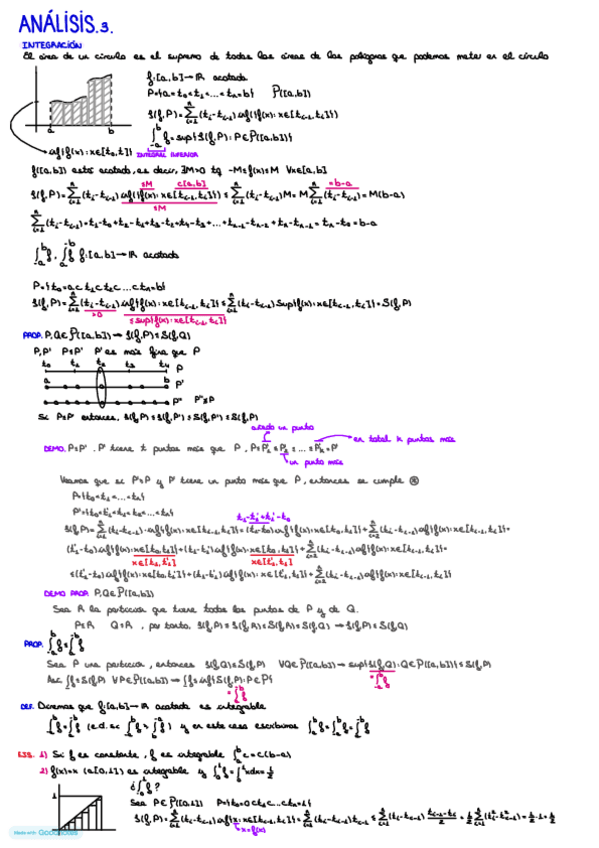 ANÁLISIS.3.
INTEGRACIÓN
El área de un círculo es el supremo de todas las áreas de los polígonos que podemos meter en el círculo
f:[a,b]→ℝ acotada
P={a=t₀<t₁<...<tₙ=b} P([a,b])
s(f,P)=∑ᵢ₌₁ⁿ(tᵢ-tᵢ₋₁)inf{f(x):x∈[tᵢ₋₁,tᵢ]}
a b
∫₋ₐᵇ f=sup{s(f,P):P∈P([a,b])}
inf{f(x):x∈[t₀,t₁]} INTEGRAL INFERIOR
f([a,b]) está acotado, es decir, ∃M>0 tq -M≤f(x)≤M ∀x∈[a,b]
≤M ⊂[a,b] =b-a
s(f,P)=∑ᵢ₌₁ⁿ(tᵢ-tᵢ₋₁)inf{f(x):x∈[tᵢ₋₁,tᵢ]}≤∑ᵢ₌₁ⁿ(tᵢ-tᵢ₋₁)M=M∑ᵢ₌₁ⁿ(tᵢ-tᵢ₋₁)=M(b-a)
≤M
∑ᵢ₌₁ⁿ(tᵢ-tᵢ₋₁)=t₁-t₀+t₂-t₁+t₃-t₂+t₄-t₃+...+tₙ₋₁-tₙ₋₂+tₙ-tₙ₋₁=tₙ-t₀=b-a
∫₋ₐᵇ f, ∫ₐ⁻ᵇ f f:[a,b]→ℝ acotada
P={t₀=a<t₁<t₂<...<tₙ=b}
s(f,P)=∑ᵢ₌₁ⁿ(tᵢ-tᵢ₋₁)inf{f(x):x∈[tᵢ₋₁,tᵢ]}≤∑ᵢ₌₁ⁿ(tᵢ-tᵢ₋₁)sup{f(x):x∈[tᵢ₋₁,tᵢ]}=S(f,P)
>0 ≤sup{f(x):x∈[tᵢ₋₁,tᵢ]}
PROP. P,Q∈P([a,b])→s(f,P)≤S(f,Q)
P,P' P≤P' P' es más fina que P
t₀ t₁ t₂ t₃ t₄ P
a b P'
P'' P''≱P
Si P≤P' entonces, s(f,P)≤s(f,P')≤S(f,P')≤S(f,P)
añado un punto
DEMO. P≤P'. P' tiene k puntos más que P, P=P'₀≤P'₁≤...≤P'ₖ=P' en total k puntos más
un punto más
Veamos que si P'≥P y P' tiene un punto más que P, entonces se cumple ⊛
P={t₀<t₁<...<tₙ}
P'={t₀<t'₁<t₁<t₂<...<tₙ} t₁-t'₁+t'₁-t₀
s(f,P)=∑ᵢ₌₁ⁿ(tᵢ-tᵢ₋₁)·inf{f(x):x∈[tᵢ₋₁,tᵢ]}=(t₁-t₀)inf{f(x):x∈[t₀,t₁]}+∑ᵢ₌₂ⁿ(tᵢ-tᵢ₋₁)inf{f(x):x∈[tᵢ₋₁,tᵢ]}=
(t'₁-t₀)inf{f(x):x∈[t₀,t₁]}+(t₁-t'₁)inf{f(x):x∈[t₀,t₁]}+∑ᵢ₌₂ⁿ(tᵢ-tᵢ₋₁)inf{f(x):x∈[tᵢ₋₁,tᵢ]}
x∈[t₀,t'₁] x∈[t'₁,t₁]
≤(t'₁-t₀)inf{f(x):x∈[t₀,t'₁]}+(t₁-t'₁)inf{f(x):x∈[t'₁,t₁]}+∑ᵢ₌₂ⁿ(tᵢ-tᵢ₋₁)inf{f(x):x∈[tᵢ₋₁,tᵢ]}
DEMO PROP. P,Q∈P([a,b])
Sea R la partición que tiene todos los puntos de P y de Q.
P≤R Q≤R, por tanto, s(f,P)≤s(f,R)≤S(f,R)≤S(f,Q)→s(f,P)≤S(f,Q)
PROP. ∫₋ₐᵇ f≤∫ₐ⁻ᵇ f
Sea P una partición, entonces s(f,Q)≤S(f,P) ∀Q∈P([a,b])→sup{s(f,Q):Q∈P([a,b])}≤S(f,P)
Así ∫f≤S(f,P) ∀P∈P([a,b])→∫f≤inf{S(f,P):P∈P} =∫₋ₐᵇ f
=∫ₐ⁻ᵇ f
DEF. Diremos que f:[a,b]→ℝ acotada es integrable
∫₋ₐᵇ f=∫ₐ⁻ᵇ f (e.d. si ∫₋ₐᵇ f≥∫ₐ⁻ᵇ f) y en este caso escribimos ∫ₐᵇ f=∫₋ₐᵇ f=∫ₐ⁻ᵇ f
EJS. 1) Si f es constante, f es integrable ∫ₐᵇ c=c(b-a)
2) f(x)=x (a[0,1]) es integrable y ∫₀¹ f=∫₀¹ xdx=1/2
¿∫₀¹ f?
1 Sea P∈P([0,1]) P={t₀=0<t₁<...<tₙ=1}
s(f,P)=∑ᵢ₌₁ⁿ(tᵢ-tᵢ₋₁)inf{x:x∈[tᵢ₋₁,tᵢ]}=∑ᵢ₌₁ⁿ(tᵢ-tᵢ₋₁)tᵢ₋₁≤∑ᵢ₌₁ⁿ(tᵢ-tᵢ₋₁)(tᵢ₋₁+tᵢ)/2=1/2∑ᵢ₌₁ⁿ(tᵢ²-tᵢ₋₁²)=1/2·1=1/2
x=f(x)
Made with Goodnotes